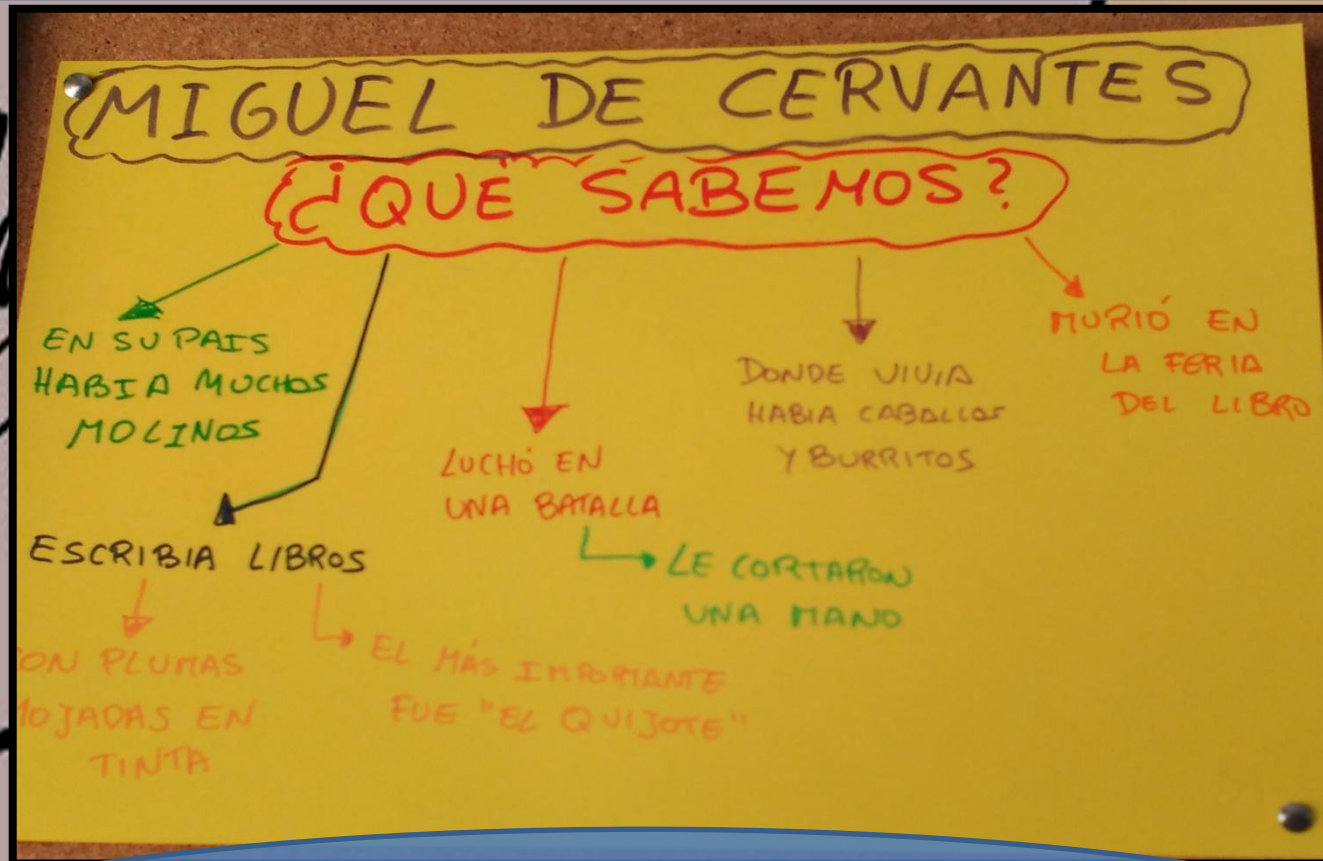 MIGUEL DE CERVANTES
¿QUÉ SABEMOS?
EN SU PAIS
HABIA MUCHOS
MOLINOS
ESCRIBIA LIBROS
ON PLUMAS
OJADAS EN
TINTA
EL MÁS IMPORTANTE
FUE "EL QUIJOTE"
LUCHÓ EN
UNA BATALLA
LE CORTARON
UNA MANO
DONDE VIVIA
HABIA CABALLOS
Y BURRITOS
MURIÓ EN
LA FERIA
DEL LIBRO